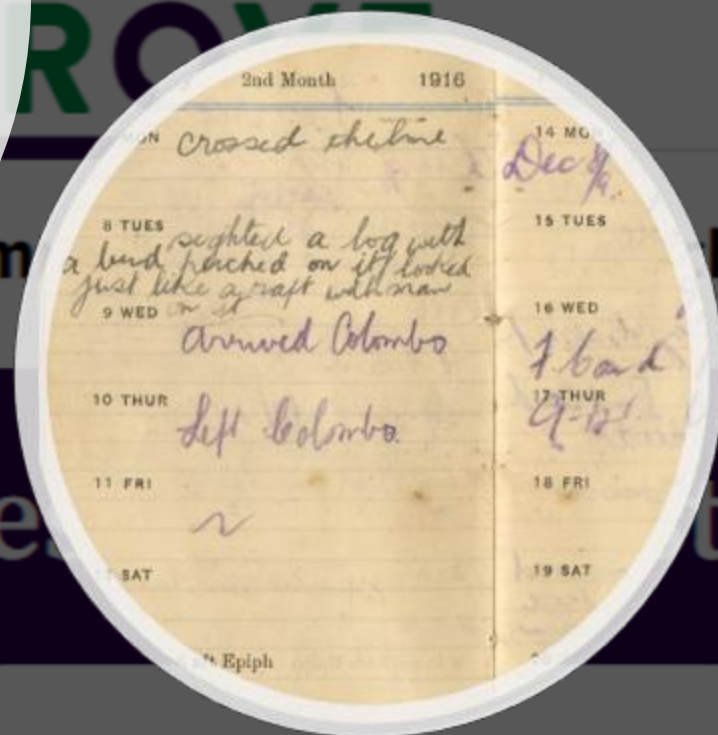 ROVE
2nd Month 1916
MON crossed the line
8 TUES sighted a log with
a bird perched on it looked
just like a raft with man
9 WED on it
arrived Colombo
10 THUR
Left Colombo.
11 FRI
SAT
aft Epiph
14 MO
Dec
15 TUES
16 WED
17 THUR
18 FRI
19 SAT